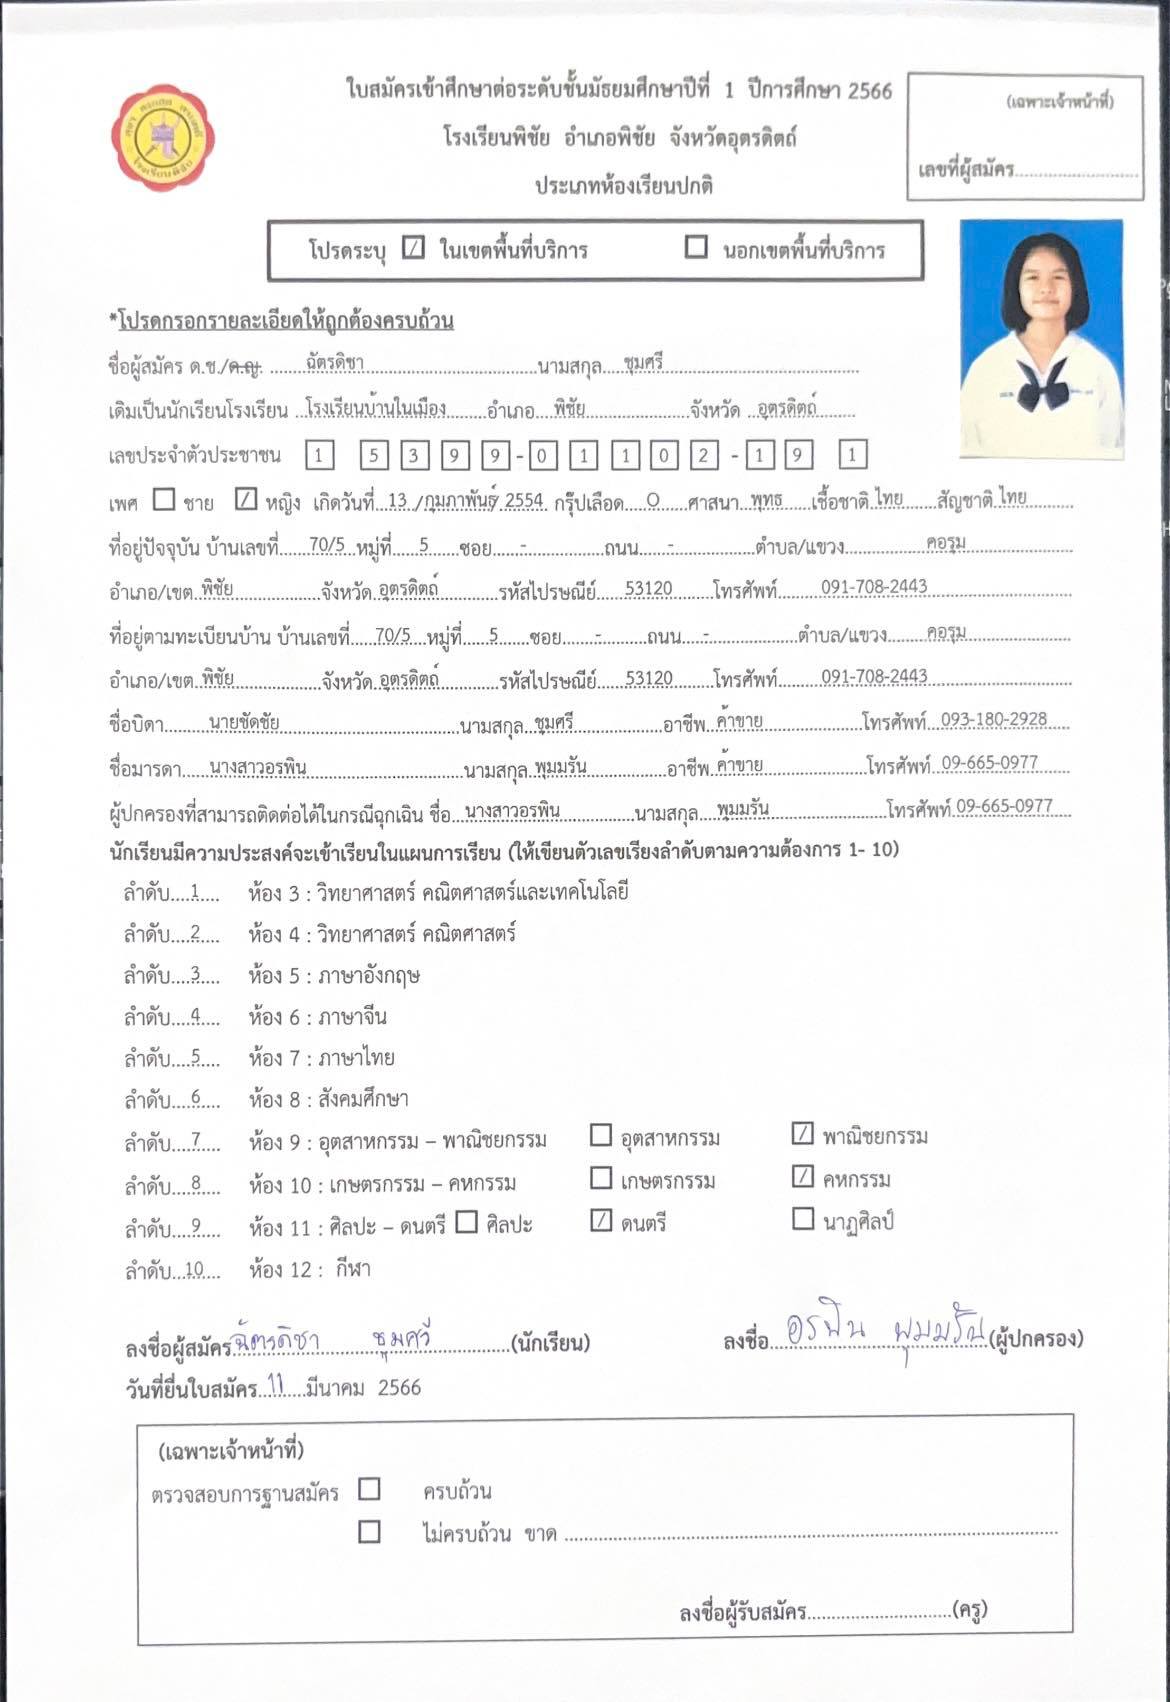 ใบสมัครเข้าศึกษาต่อระดับชั้นมัธยมศึกษาปีที่ 1 ปีการศึกษา 2566
โรงเรียนพิชัย อำเภอพิชัย จังหวัดอุตรดิตถ์
ประเภทห้องเรียนปกติ
(เฉพาะเจ้าหน้าที่)
เลขที่ผู้สมัคร
โรงเรียนพิชัย
โปรดระบุ / ในเขตพื้นที่บริการ นอกเขตพื้นที่บริการ
*โปรดกรอกรายละเอียดให้ถูกต้องครบถ้วน
ชื่อผู้สมัคร ด.ช./ด.ญ. ฉัตรดิชา นามสกุล ชุมศรี
เดิมเป็นนักเรียนโรงเรียน โรงเรียนบ้านในเมือง อำเภอ พิชัย จังหวัด อุตรดิตถ์
เลขประจำตัวประชาชน 1 5 3 9 9 - 0 1 1 0 2 - 1 9 1
เพศ ชาย / หญิง เกิดวันที่ 13 /กุมภาพันธ์/ 2554 กรุ๊ปเลือด O ศาสนา พุทธ เชื้อชาติ ไทย สัญชาติ ไทย
ที่อยู่ปัจจุบัน บ้านเลขที่ 70/5 หมู่ที่ 5 ซอย - ถนน - ตำบล/แขวง คอรุม
อำเภอ/เขต พิชัย จังหวัด อุตรดิตถ์ รหัสไปรษณีย์ 53120 โทรศัพท์ 091-708-2443
ที่อยู่ตามทะเบียนบ้าน บ้านเลขที่ 70/5 หมู่ที่ 5 ซอย - ถนน - ตำบล/แขวง คอรุม
อำเภอ/เขต พิชัย จังหวัด อุตรดิตถ์ รหัสไปรษณีย์ 53120 โทรศัพท์ 091-708-2443
ชื่อบิดา นายชัดชัย นามสกุล ชุมศรี อาชีพ ค้าขาย โทรศัพท์ 093-180-2928
ชื่อมารดา นางสาวอรพิน นามสกุล พุมมรัน อาชีพ ค้าขาย โทรศัพท์ 09-665-0977
ผู้ปกครองที่สามารถติดต่อได้ในกรณีฉุกเฉิน ชื่อ นางสาวอรพิน นามสกุล พุมมรัน โทรศัพท์ 09-665-0977
นักเรียนมีความประสงค์จะเข้าเรียนในแผนการเรียน (ให้เขียนตัวเลขเรียงลำดับตามความต้องการ 1- 10)
ลำดับ 1 ห้อง 3 : วิทยาศาสตร์ คณิตศาสตร์และเทคโนโลยี
ลำดับ 2 ห้อง 4 : วิทยาศาสตร์ คณิตศาสตร์
ลำดับ 3 ห้อง 5 : ภาษาอังกฤษ
ลำดับ 4 ห้อง 6 : ภาษาจีน
ลำดับ 5 ห้อง 7 : ภาษาไทย
ลำดับ 6 ห้อง 8 : สังคมศึกษา
ลำดับ 7 ห้อง 9 : อุตสาหกรรม – พาณิชยกรรม อุตสาหกรรม / พาณิชยกรรม
ลำดับ 8 ห้อง 10 : เกษตรกรรม – คหกรรม เกษตรกรรม / คหกรรม
ลำดับ 9 ห้อง 11 : ศิลปะ – ดนตรี ศิลปะ / ดนตรี นาฏศิลป์
ลำดับ 10 ห้อง 12 : กีฬา
ลงชื่อผู้สมัคร ฉัตรดิชา ชุมศรี (นักเรียน) ลงชื่อ อรพิน พุมมรัน (ผู้ปกครอง)
วันที่ยื่นใบสมัคร 11 มีนาคม 2566
(เฉพาะเจ้าหน้าที่)
ตรวจสอบการฐานสมัคร ครบถ้วน
ไม่ครบถ้วน ขาด
ลงชื่อผู้รับสมัคร (ครู)